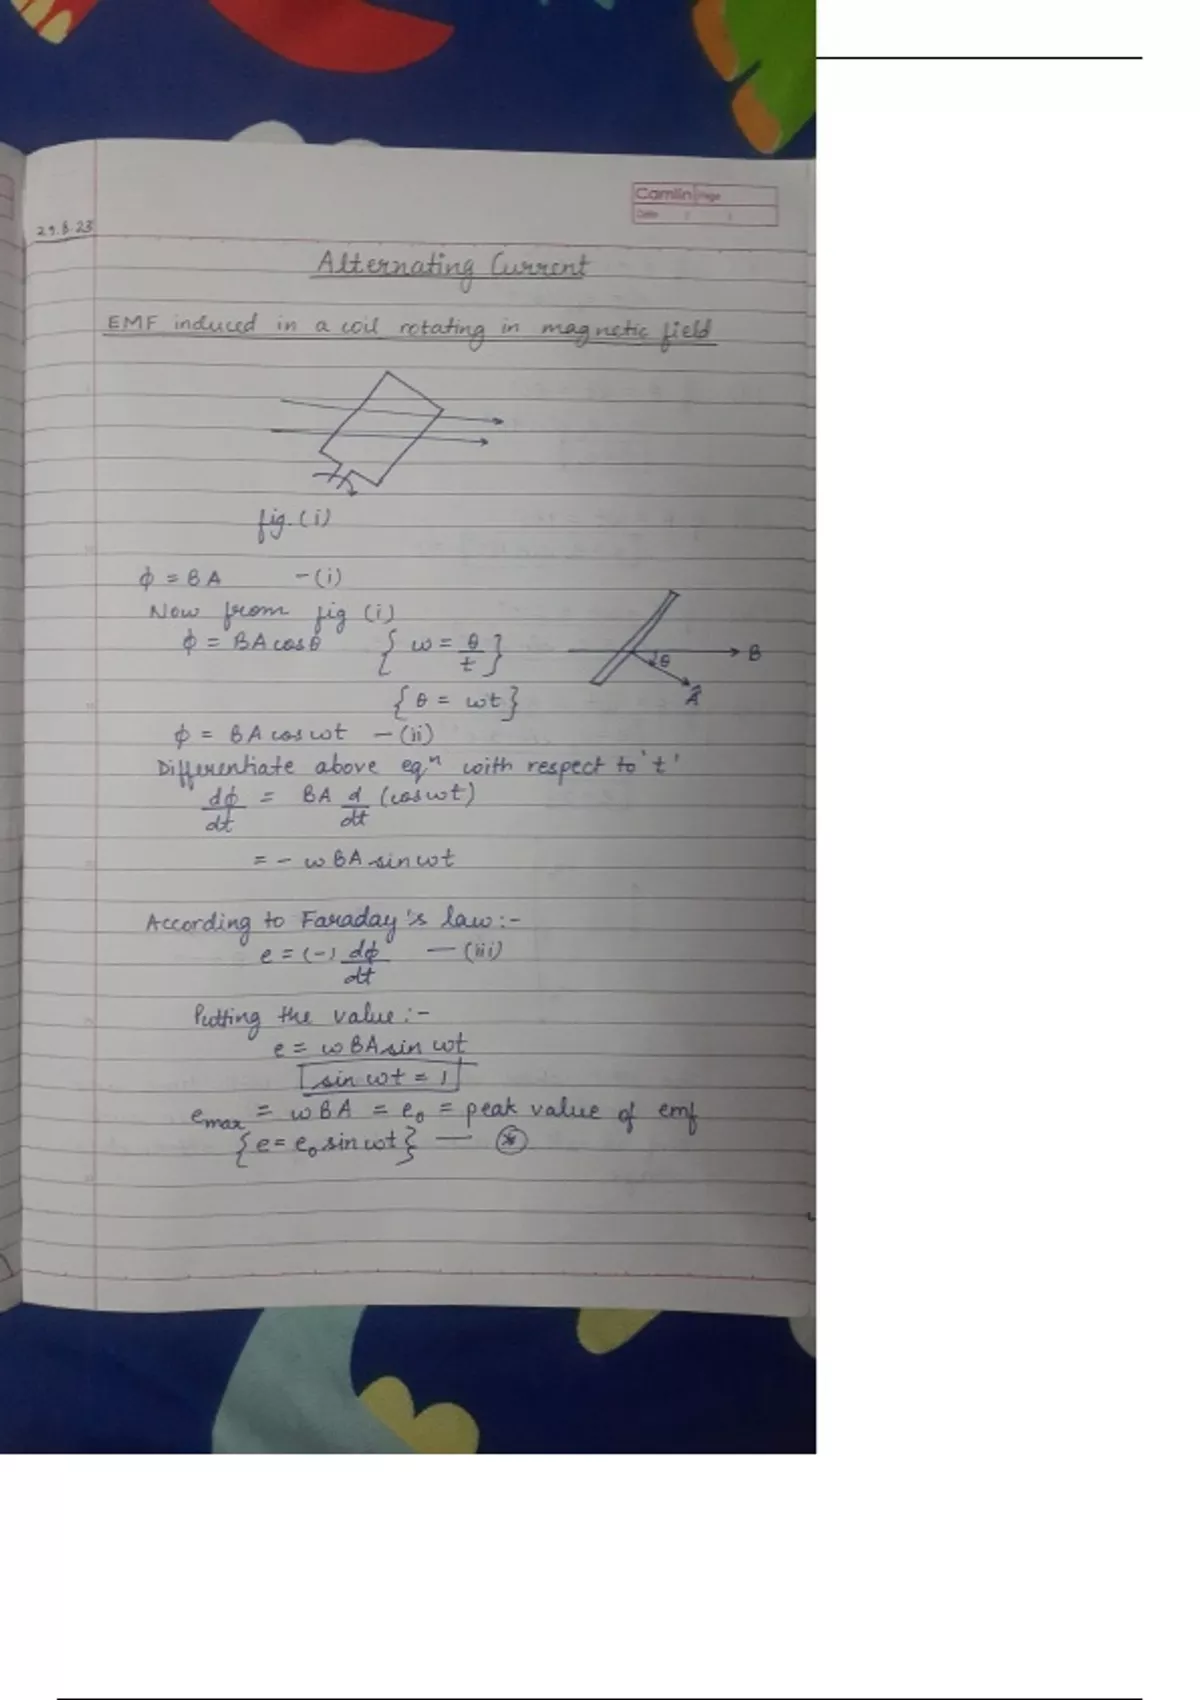 Camlin Page
Date / /
29.8.23
Alternating Current
EMF induced in a coil rotating in magnetic field
fig.(i)
ϕ = BA —(i)
Now from fig (i)
ϕ = BA cosθ { ω = θ/t }
B
θ
Â
{ θ = ωt }
ϕ = BA cos ωt —(ii)
Differentiate above eqⁿ with respect to 't'
dϕ/dt = BA d/dt (cos ωt)
= - ωBA sin ωt
According to Faraday's law:-
e = (-) dϕ/dt —(iii)
Putting the value:-
e = ωBA sin ωt
sin ωt = 1
e_max = ωBA = e₀ = peak value of emf
{e = e₀ sin ωt} — ⊛